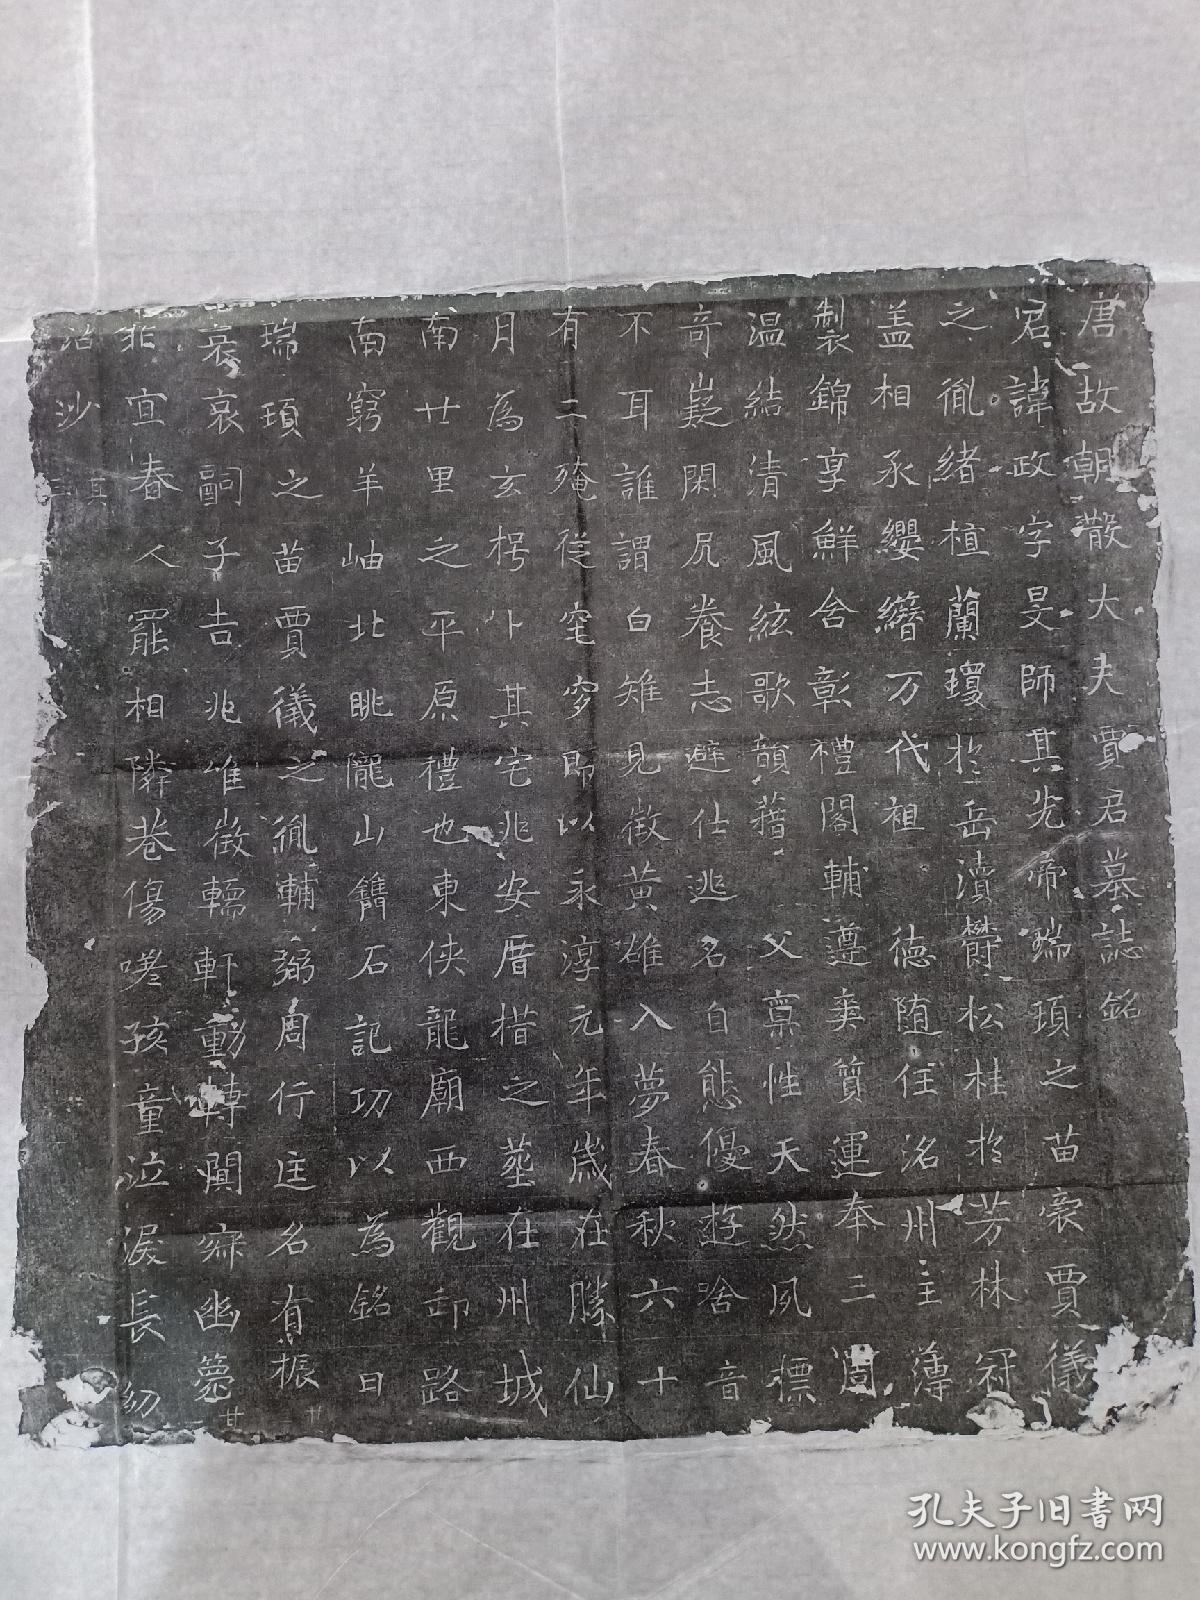 唐故朝散大夫賈君墓誌銘
君諱政字旻師其先帝瑞頊之苗裔賈儀
之胤緒植蘭瓊於岳瀆欝松桂於芳林冠
盖相承纓纘万代祖德随任洺州主薄
製錦享鮮含彰禮閣輔遵奕質運奉三周
温結清風絃歌韻藉父禀性天然夙摽
奇嶷閑尻養志避仕逃名自態優遊啥音
不耳誰謂白雉見徵黄雄入夢春秋六十
有二殯從窀穸即以永淳元年歲在勝仙
月為玄枵卜其宅兆安厝措之塟在州城
南廿里之平原禮也東侠龍廟西觀卸路
南窮羊岫北眺隴山鐫石記功以為銘曰
瑞頊之苗賈儀之胤輔弼周行廷名有振
哀哀嗣子吉兆唯徵轜軒動轉闃寂幽夢
非宜春人罷相隣巷傷嗟孩童泣淚長幼
沙
孔夫子旧书网
www.kongfz.com